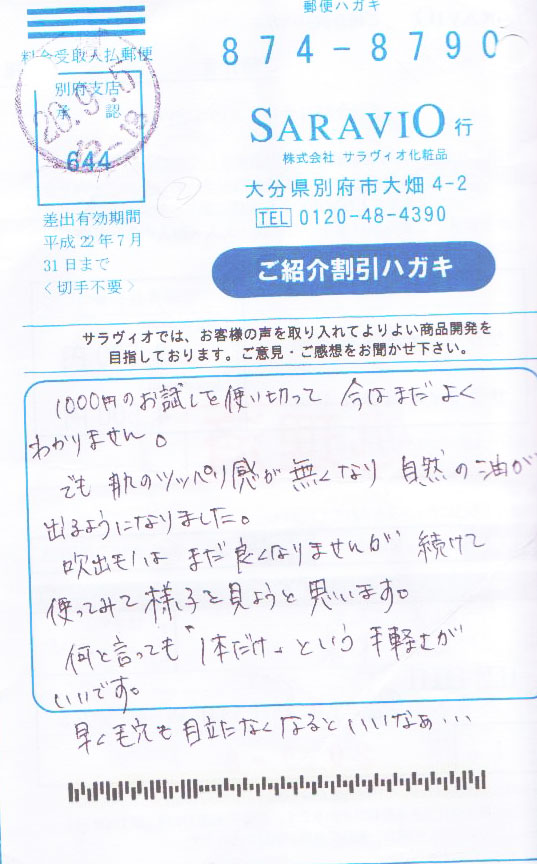 郵便ハガキ
874-8790
料金受取人払郵便
別府支店
承認
644
20.9.5
12-18
SARAVIO 行
株式会社 サラヴィオ化粧品
大分県別府市大畑 4-2
TEL 0120-48-4390
差出有効期間
平成22年7月
31日まで
<切手不要>
ご紹介割引ハガキ
サラヴィオでは、お客様の声を取り入れてよりよい商品開発を
目指しております。ご意見・ご感想をお聞かせ下さい。
1000円のお試しを使い切って 今はまだよく
わかりません。
でも 肌のツッパリ感が 無くなり 自然の油が
出るようになりました。
吹出モノは まだ良くなりませんが 続けて
使ってみて様子を見ようと思います。
何と言っても「1本だけ」という 手軽さが
いいです。
早く毛穴も目立たなくなるといいなぁ…